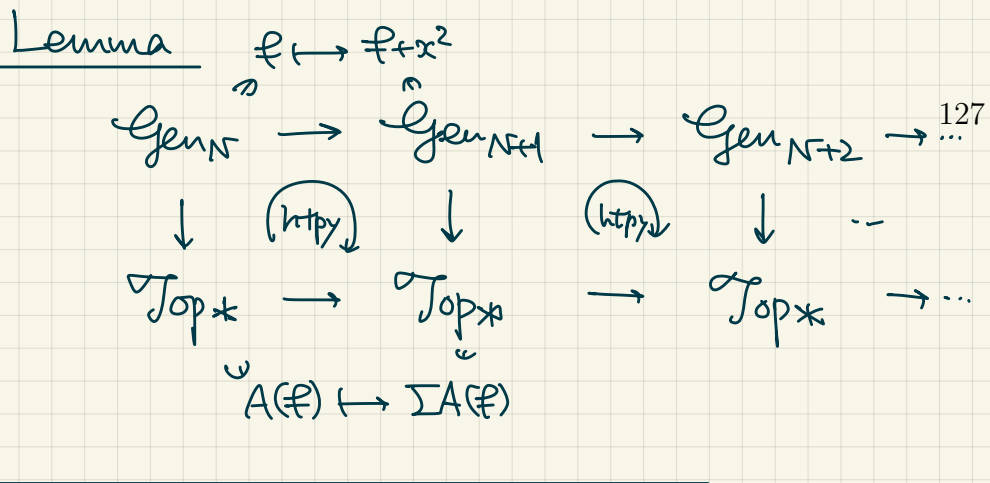 Lemma f ↦ f+x²
Gen_N → Gen_{N+1} → Gen_{N+2} → ...
127
↓ htpy ↓ htpy ↓ ...
Top_* → Top_* → Top_* → ...
A(f) ↦ ΣA(f)